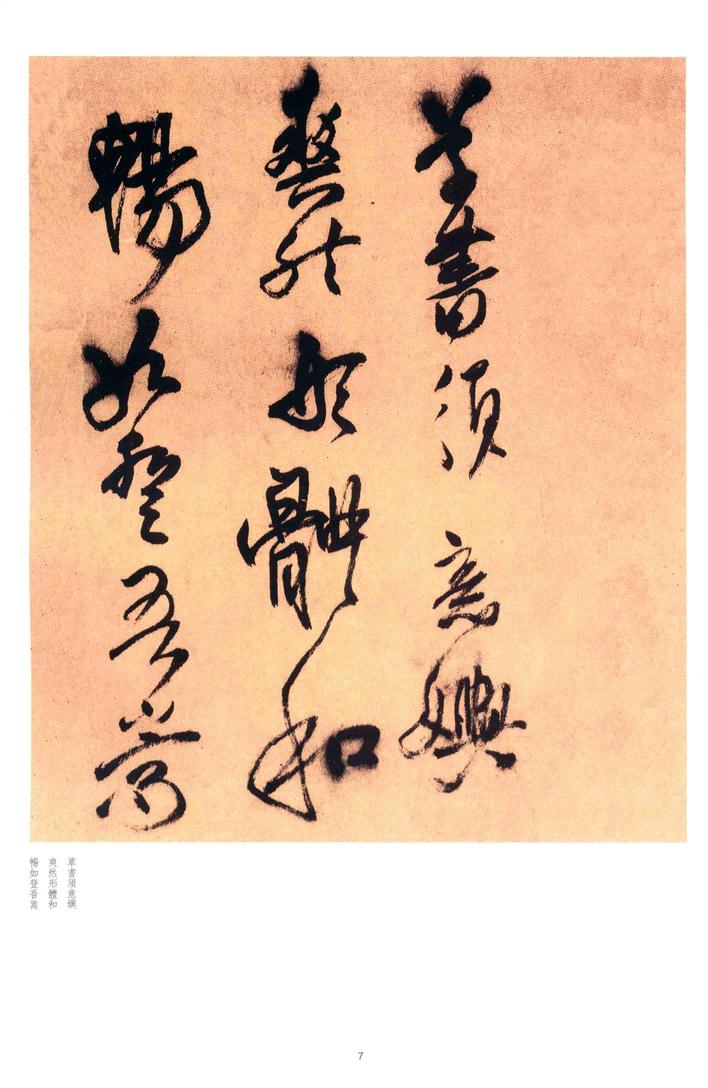 草書須意懊
爽然形體和
暢如登吾嵩
草書須意懊
爽然形體和
暢如登吾嵩
7